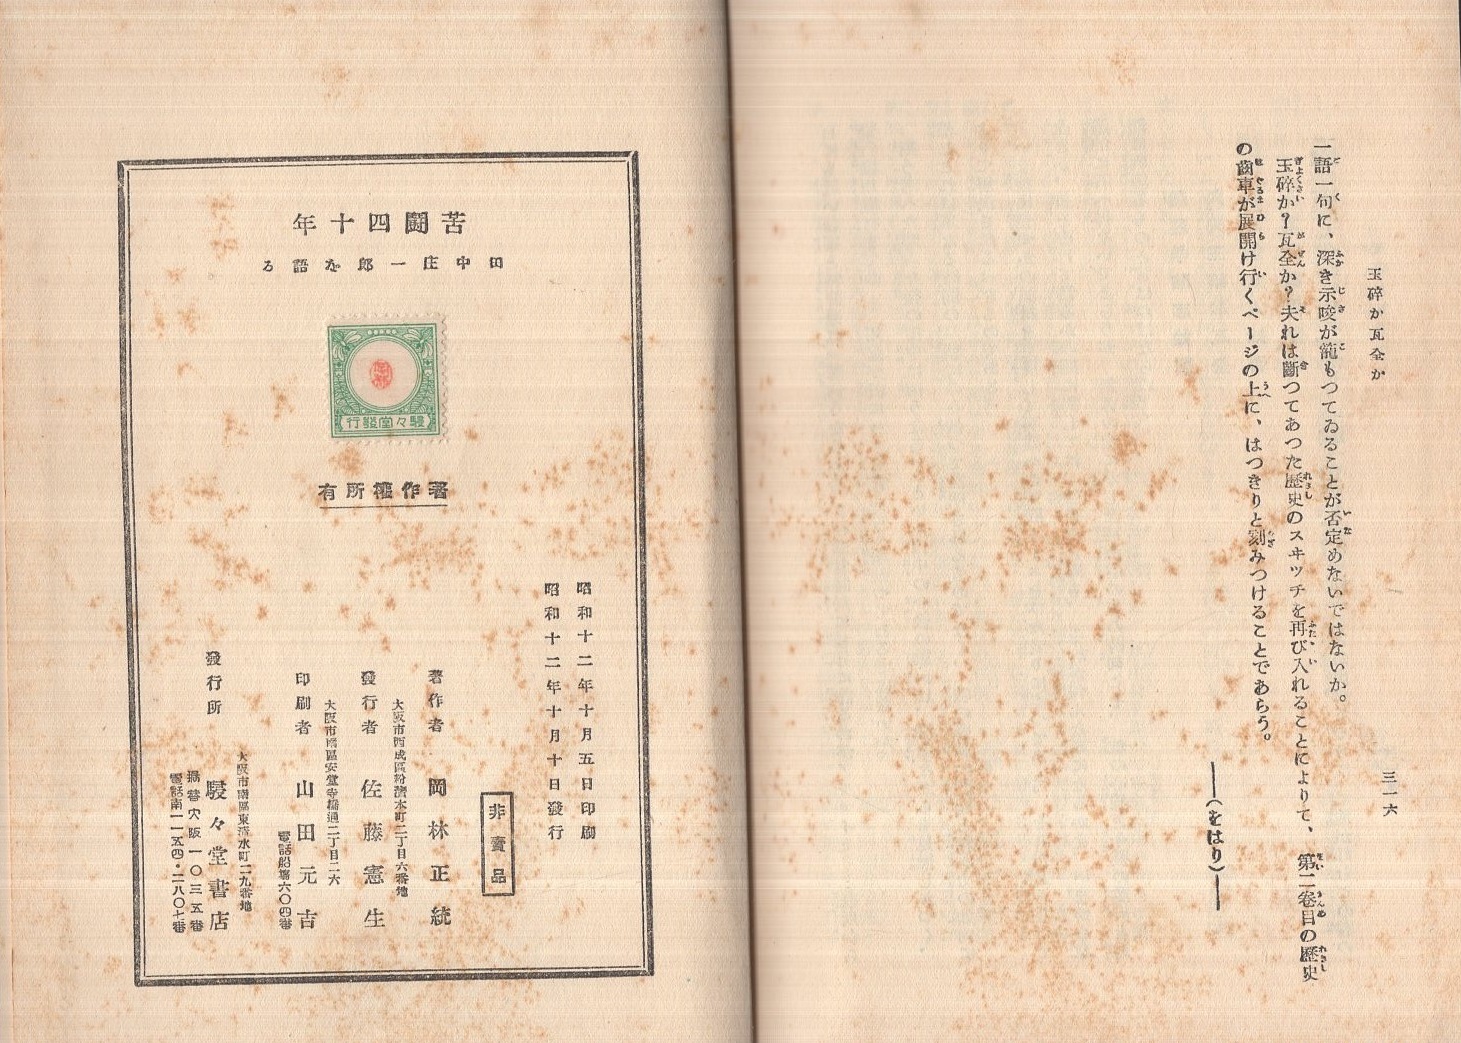 玉碎か瓦全か
三一六
一語一句に、深き示唆が籠もつてゐることが否定めないではないか。
玉碎か？瓦全か？夫れは斷つてあつた歷史のスヰッチを再び入れることによりて、第二卷目の歷史
の齒車が展開け行くページの上に、はつきりと刻みつけることであらう。
―(をはり)―
苦鬪四十年
田中庄一郎を語る
駸々堂發行
著作權所有
昭和十二年十月五日印刷
昭和十二年十月十日發行
非賣品
著作者 岡林正統
大阪市西成區粉濱本町二丁目六番地
發行者 佐藤憲生
大阪市南區安堂寺橋通二丁目二六
印刷者 山田元吉
電話船場六〇四番
大阪市南區東淸水町二九番地
發行所 駸々堂書店
振替大阪一〇三五番
電話南一一五四・二八〇七番